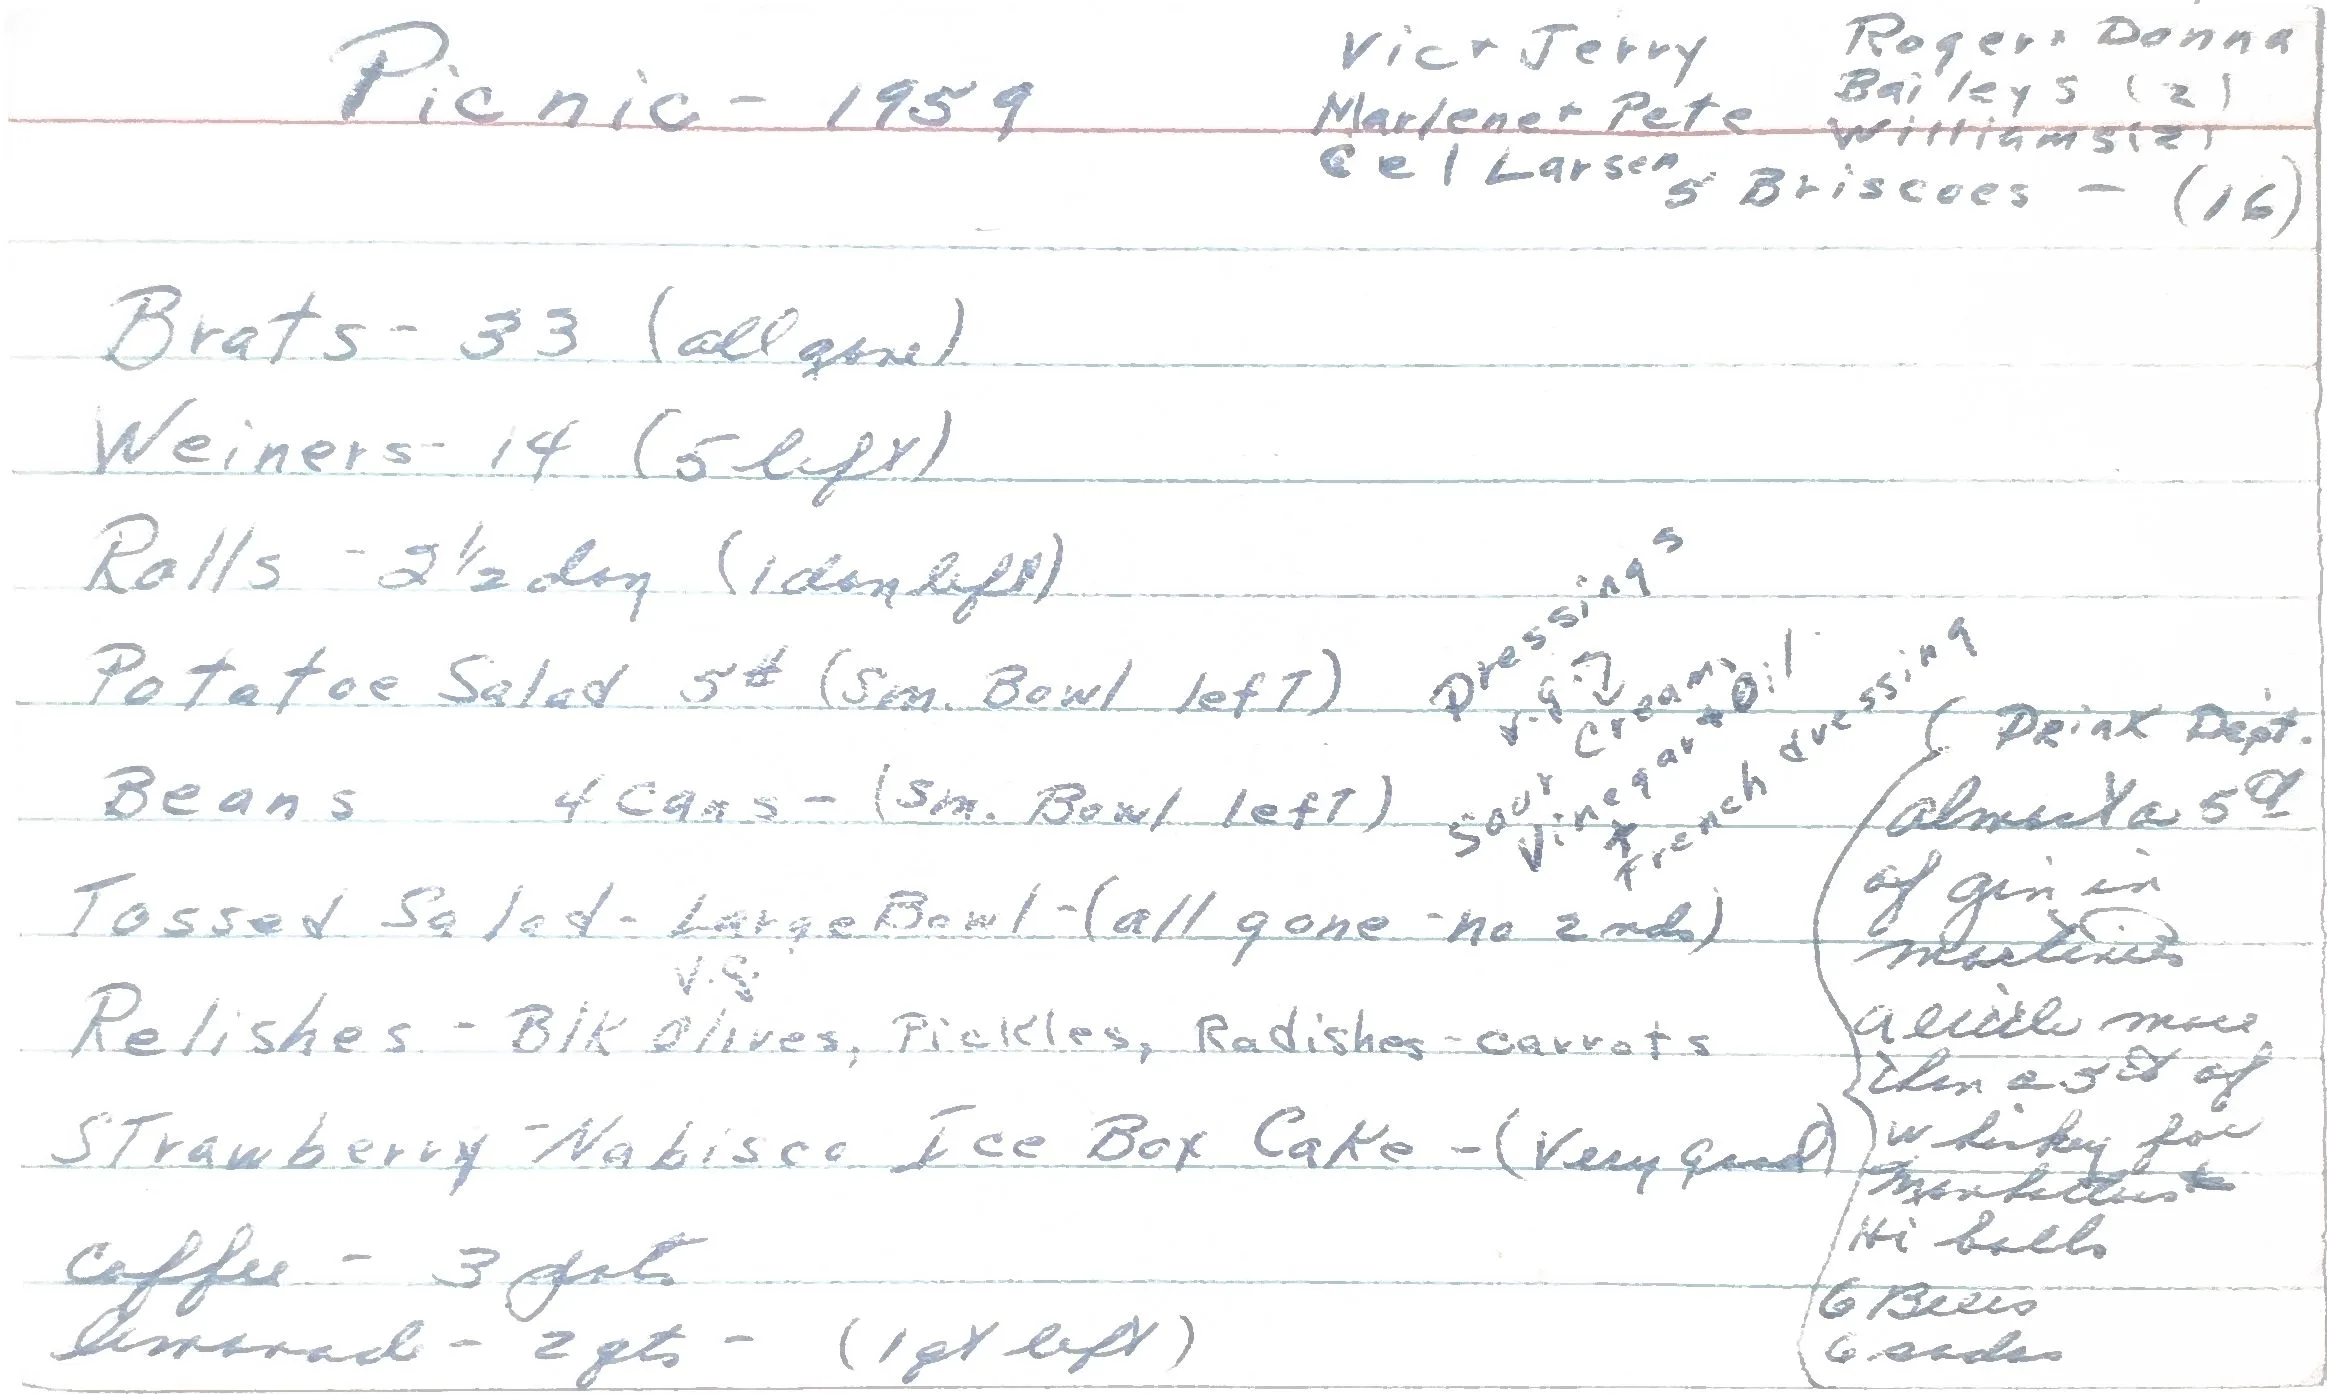 Picnic - 1959
Vic + Jerry
Marlene + Pete
Cel Larsen
Roger + Donna
Baileys (2)
Williams (2)
5 Briscoes - (16)
Brats - 33 (all gone)
Weiners - 14 (5 left)
Rolls - 2 1/2 doz (1 doz left)
Potatoe Salad 5# (Sm. Bowl left)
Beans 4 cans - (Sm. Bowl left)
Tossed Salad - Large Bowl - (all gone - no 2nds)
V.G.
Dressings
V.G.
Sour Cream
Vinegar + Oil
French dressing
Relishes - Blk Olives, Pickles, Radishes - carrots
Strawberry - Nabisco Ice Box Cake - (Very good)
Coffee - 3 qts
lemonade - 2 qts - (1 qt left)
Drink Dept.
almost a 5th
of gin in
martinis
a little more
than a 5th of
whiskey for
Manhattans +
Hi balls
6 Beers
6 sodas